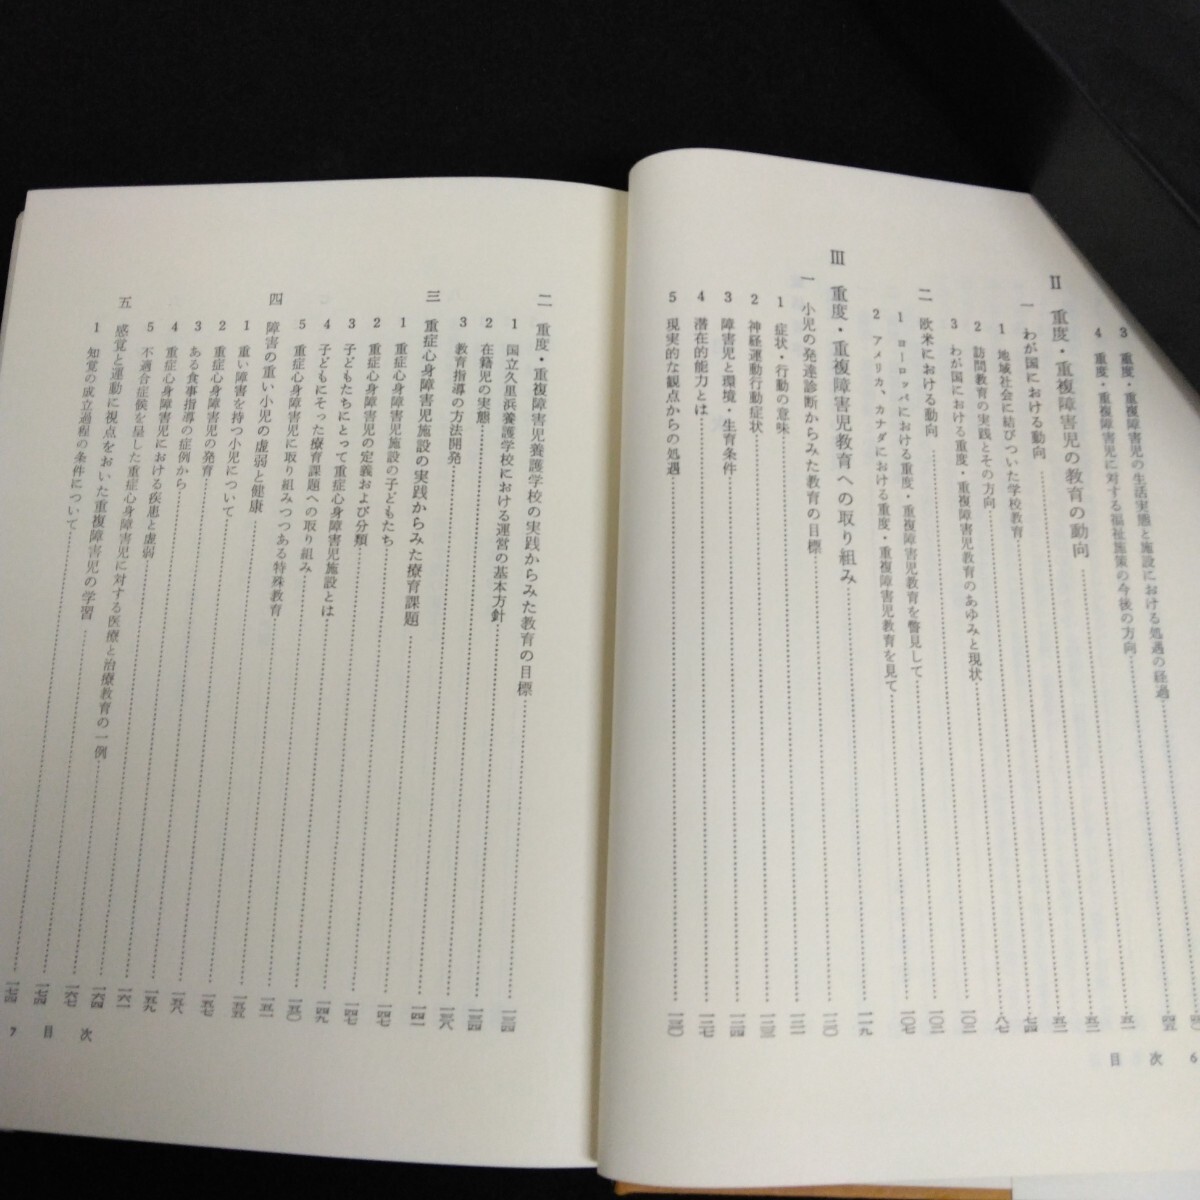 3 重度・重複障害児の生活実態と施設における処遇の経過
4 重度・重複障害児に対する福祉施策の今後の方向 四五
II 重度・重複障害児の教育の動向 五一
一 わが国における動向 五二
1 地域社会に結びついた学校教育 五二
2 訪問教育の実践とその方向 七四
3 わが国における重度・重複障害児教育のあゆみと現状 八七
二 欧米における動向 一〇二
1 ヨーロッパにおける重度・重複障害児教育を瞥見して 一〇二
2 アメリカ、カナダにおける重度・重複障害児教育を見て 一〇七
III 重度・重複障害児教育への取り組み 一一九
一 小児の発達診断からみた教育の目標 一二〇
1 症状・行動の意味 一二一
2 神経運動行動症状 一二三
3 障害児と環境・生育条件 一二四
4 潜在的能力とは 一二七
5 現実的な観点からの処遇 一三〇
目次 6
二 重度・重複障害児養護学校の実践からみた教育の目標 一三四
1 国立久里浜養護学校における運営の基本方針 一三四
2 在籍児の実態 一三八
3 教育指導の方法開発 一四一
三 重症心身障害児施設の実践からみた療育課題 一四七
1 重症心身障害児施設の子どもたち 一四七
2 重症心身障害児の定義および分類 一四九
3 子どもたちにとって重症心身障害児施設とは 一五〇
4 子どもにそった療育課題への取り組み 一五一
5 重症心身障害児に取り組みつつある特殊教育 一五五
四 障害の重い小児の虚弱と健康 一五七
1 重い障害を持つ小児について 一五八
2 重症心身障害児の発育 一五九
3 ある食事指導の症例から 一六一
4 重症心身障害児における疾患と虚弱 一六四
5 不適合症候を呈した重症心身障害児に対する医療と治療教育の一例 一六七
五 感覚と運動に視点をおいた重複障害児の学習 一七四
1 知覚の成立過程の条件について 一七四
7 目次